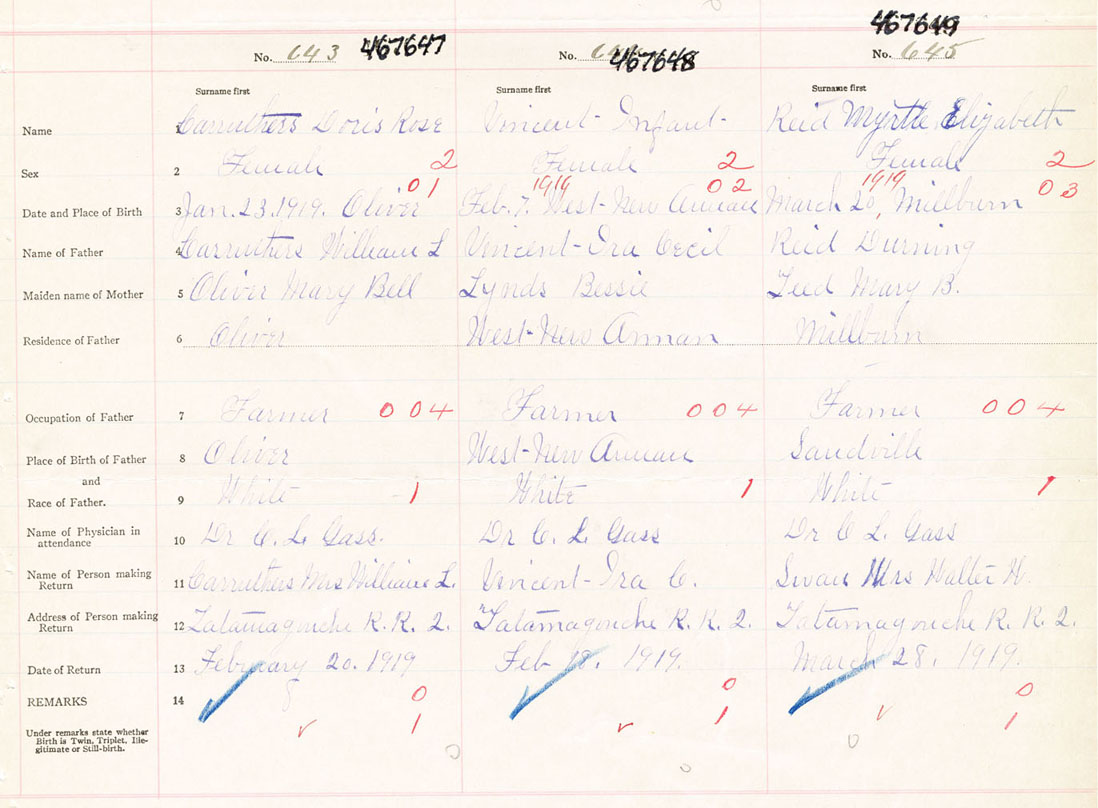 467649
No. 643 467647 No. 467648 No. 645
Surname first Surname first Surname first
Name 1 Carruthers Doris Rose Vincent- Infant- Reid Myrtle Elizabeth
Sex 2 Female 2 Female 2 Female 2
01 1919 02 1919 03
Date and Place of Birth 3 Jan. 23. 1919. Oliver Feb. 7. West-New Annan March 20, Millburn
Name of Father 4 Carruthers William L Vincent-Ira Cecil Reid Durning
Maiden name of Mother 5 Oliver Mary Bell Lynds Bessie Teed Mary B.
Residence of Father 6 Oliver West-New Annan Millburn
Occupation of Father 7 Farmer 004 Farmer 004 Farmer 004
Place of Birth of Father 8 Oliver West-New Annan Sandville
and
Race of Father. 9 White 1 White 1 White 1
Name of Physician in
attendance 10 Dr C. L. Gass. Dr C. L. Gass Dr C L. Gass
Name of Person making
Return 11 Carruthers Mrs William L. Vincent-Ira C. Swan Mrs Walter H.
Address of Person making
Return 12 Tatamagouche R. R. 2. Tatamagouche R. R. 2. Tatamagouche R. R. 2.
Date of Return 13 February 20. 1919 Feb 1919. March 28. 1919.
REMARKS 14 0 0 0
Under remarks state whether
Birth is Twin, Triplet. Ille-
gitimate or Still-birth. 1 1 1